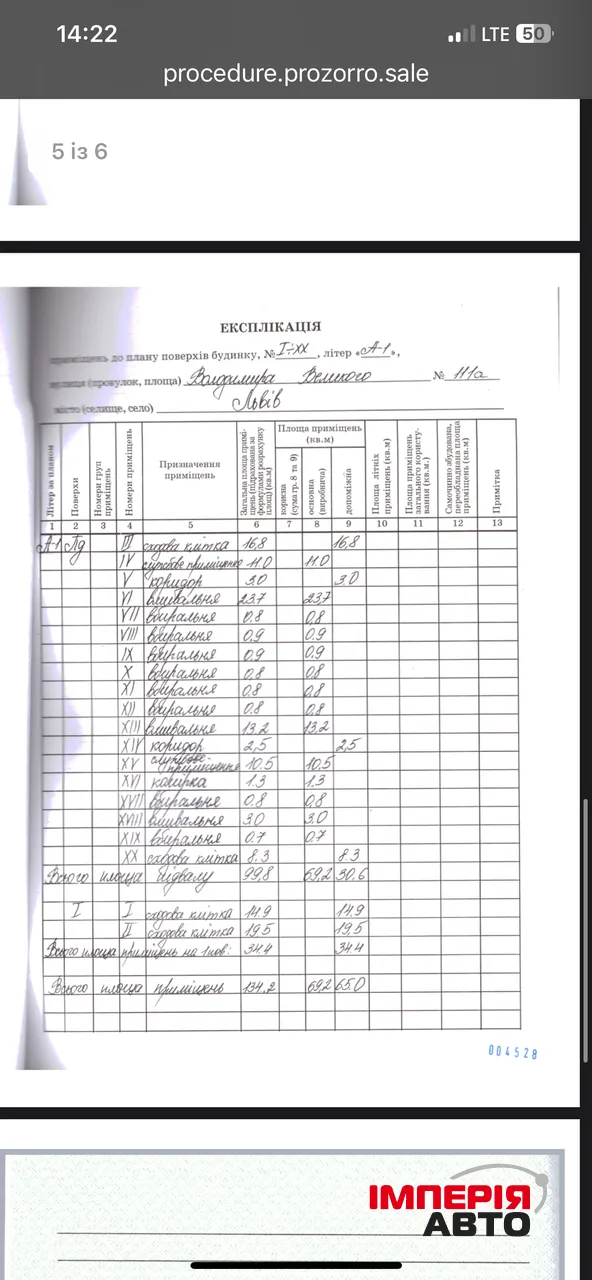 14:22 LTE 50
procedure.prozorro.sale
5 із 6
ЕКСПЛІКАЦІЯ
приміщень до плану поверхів будинку, № I÷XX, літер «А-1»,
вулиця (провулок, площа) Володимира Великого № 111а
місто (селище, село) Львів
Літер за планом Поверхи Номери груп приміщень Номери приміщень Призначення приміщень Загальна площа приміщень (підрахована за формулами розрахунку площ) (кв.м) Площа приміщень (кв.м) корисна (сума гр. 8 та 9) основна (виробнича) допоміжна Площа літніх приміщень (кв.м) Площа приміщень загального користування (кв.м.) Самочинно збудована, переобладнана площа приміщень (кв.м) Примітка
1 2 3 4 5 6 7 8 9 10 11 12 13
А-1 Пд III сходова клітка 16,8 16,8
IV службове приміщення 11.0 11.0
V коридор 3.0 3.0
VI вмивальня 23,7 23,7
VII вбиральня 0.8 0,8
VIII вбиральня 0.9 0.9
IX вбиральня 0.9 0.9
X вбиральня 0.8 0.8
XI вбиральня 0.8 0.8
XII вбиральня 0.8 0.8
XIII вмивальня 13.2 13.2
XIV коридор 2,5 2,5
XV службове приміщення 10.5 10.5
XVI комірка 1.3 1.3
XVII вбиральня 0.8 0,8
XVIII вмивальня 3.0 3.0
XIX вбиральня 0.7 0.7
XX сходова клітка 8.3 8.3
Всього площа підвалу 99,8 69,2 30.6
I I сходова клітка 14.9 14.9
II сходова клітка 19.5 19.5
Всього площа приміщень на 1 пов: 34.4 34.4
Всього площа приміщень 134.2 69.2 65.0
004528
ІМПЕРІЯ
АВТО